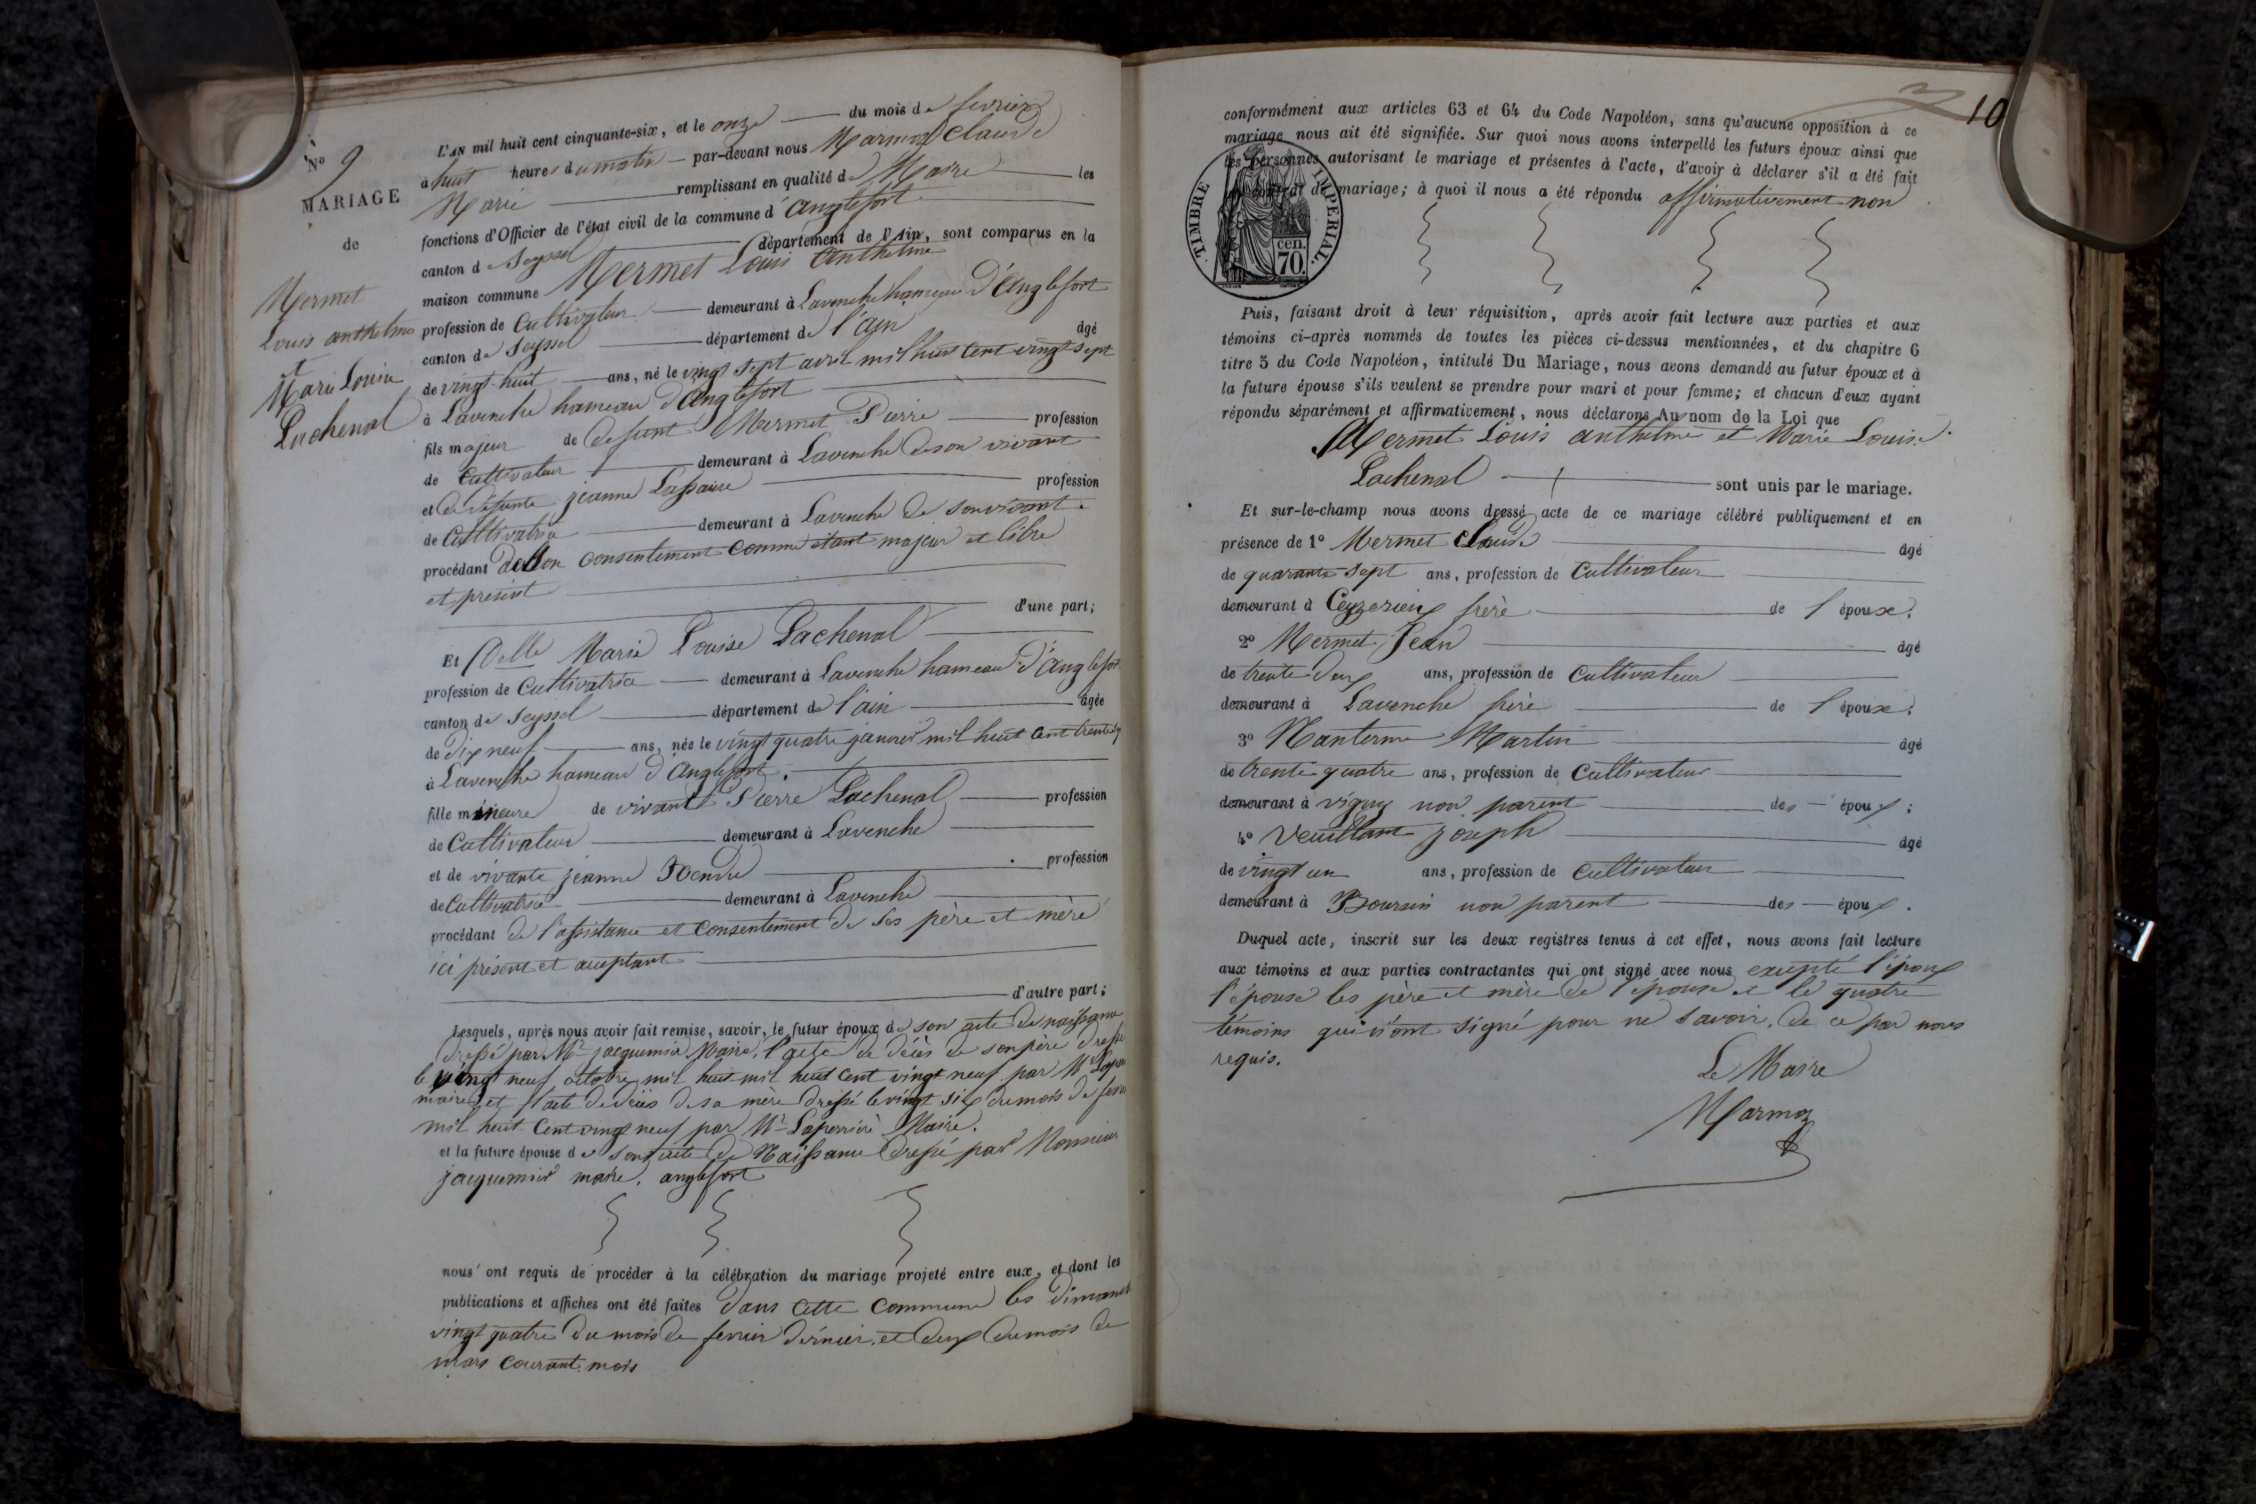 No 9
MARIAGE
de
Mermet
Louis anthelme
et
Marie Louise
Lachenal
L'AN mil huit cent cinquante-six, et le onze du mois de fevrier
à huit heures du matin par-devant nous Marmoz Claude
Marie remplissant en qualité de Maire les
fonctions d'Officier de l'état civil de la commune d'anglefort
canton de Seyssel département de l'Ain, sont comparus en la
maison commune Mermet Louis anthelme
profession de Cultivateur demeurant à Lavenche hameau d'anglefort
canton de Seyssel département de l'ain âgé
de vingt-huit ans, né le vingt sept avril mil huit cent vingt sept
à Lavenche hameau d'anglefort
fils majeur de defunt Mermet Pierre profession
de Cultivateur demeurant à Lavenche de son vivant
et de défunte jeanne profession
de Cultivatrice demeurant à Lavenche de son vivant.
procédant de son consentement comme étant majeur et libre
et présent
d'une part;
Et Delle Marie Louise Lachenal
profession de Cultivatrice demeurant à Lavenche hameau d'anglefort
canton de Seyssel département de l'ain âgée
de dix neuf ans, née le vingt quatre janvier mil huit cent
à Lavenche hameau d'anglefort.
fille mineure de vivant Pierre Lachenal profession
de Cultivateur demeurant à Lavenche
et de vivante jeanne profession
de Cultivatrice demeurant à Lavenche
procédant de l'assistance et consentement de ses père et mère
ici présent et acceptant
d'autre part;
Lesquels, après nous avoir fait remise, savoir, le futur époux de son acte de naissance
dressé par Mr jacquemier Maire, l'acte de décès de son père dressé
le vingt neuf octobre mil huit mil huit cent vingt neuf par Mr
maire et l'acte de décès de sa mère dressé le vingt six du mois de
mil huit cent vingt neuf par Mr Laperrière Maire.
et la future épouse de son acte de Naissance dressé par Monsieur
jacquemier maire. anglefort
nous ont requis de procéder à la célébration du mariage projeté entre eux, et dont les
publications et affiches ont été faites dans cette commune les dimanches
vingt quatre du mois de fevrier dernier, et deux du mois de
mars courant mois
10
conformément aux articles 63 et 64 du Code Napoléon, sans qu'aucune opposition à ce
mariage nous ait été signifiée. Sur quoi nous avons interpellé les futurs époux ainsi que
les personnes autorisant le mariage et présentes à l'acte, d'avoir à déclarer s'il a été fait
contrat de mariage; à quoi il nous a été répondu affirmativement non
TIMBRE IMPERIAL.
cen.
70.
Puis, faisant droit à leur réquisition, après avoir fait lecture aux parties et aux
témoins ci-après nommés de toutes les pièces ci-dessus mentionnées, et du chapitre 6
titre 5 du Code Napoléon, intitulé Du Mariage, nous avons demandé au futur époux et à
la future épouse s'ils veulent se prendre pour mari et pour femme; et chacun d'eux ayant
répondu séparément et affirmativement, nous déclarons Au nom de la Loi que
Mermet Louis anthelme et Marie Louise
Lachenal sont unis par le mariage.
Et sur-le-champ nous avons dressé acte de ce mariage célébré publiquement et en
présence de 1o Mermet Claude âgé
de quarante sept ans, profession de Cultivateur
demeurant à Ceyzerieu frère de l'époux;
2o Mermet Jean âgé
de trente deux ans, profession de Cultivateur
demeurant à Lavenche frère de l'époux;
3o Nanterme Martin âgé
de trente quatre ans, profession de Cultivateur
demeurant à vigny non parent des époux;
4o Veuillant joseph âgé
de vingt un ans, profession de Cultivateur
demeurant à Boursin non parent des époux.
Duquel acte, inscrit sur les deux registres tenus à cet effet, nous avons fait lecture
aux témoins et aux parties contractantes qui ont signé avec nous excepté l'époux
l'épouse les père et mère de l'épouse et le quatre
témoins qui n'ont signé pour ne savoir, de ce par nous
requis.
Le Maire
Marmoz